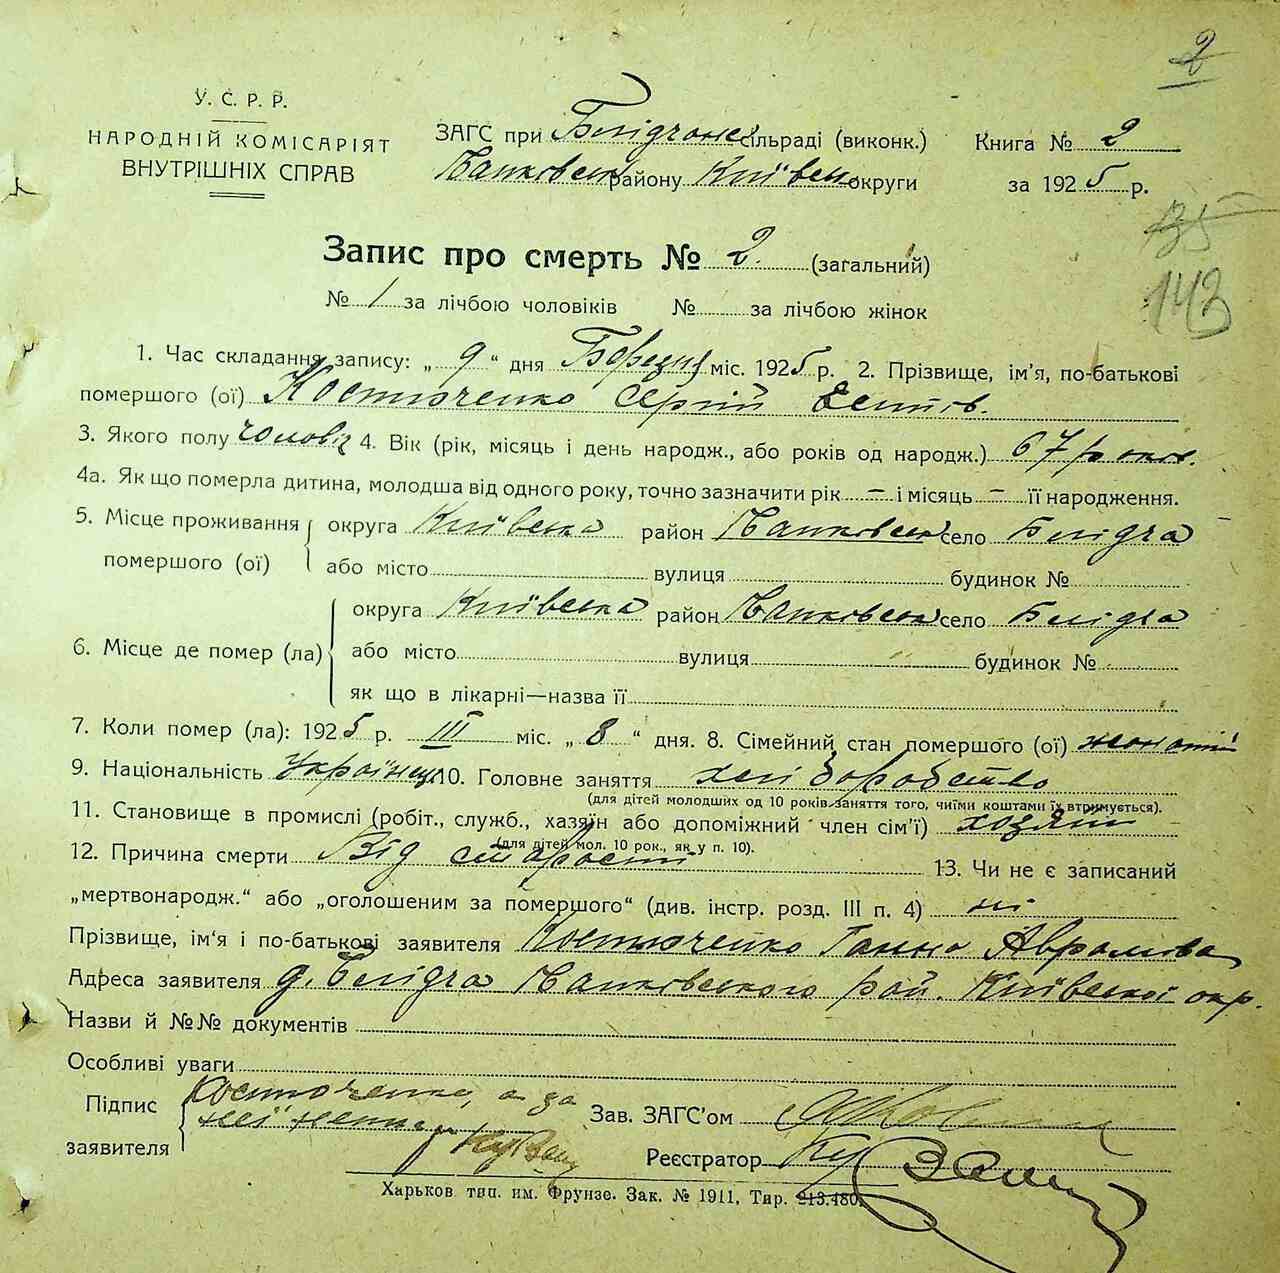 2
У. С. Р. Р.
НАРОДНІЙ КОМІСАРІЯТ
ВНУТРІШНІХ СПРАВ
ЗАГС при сільраді (виконк.)
району Київськ округи
Книга № 2
за 1925 р.
135
143
Запис про смерть № 2. (загальний)
№ 1 за лічбою чоловіків № за лічбою жінок
1. Час складання запису: „ 9 “ дня міс. 1925 р. 2. Прізвище, ім'я, по-батькові
помершого (ої) Костюченко Сергій
3. Якого полу чоловіч 4. Вік (рік, місяць і день народж., або років од народж.) 67 років.
4а. Як що померла дитина, молодша від одного року, точно зазначити рік – і місяць – її народження.
5. Місце проживання помершого (ої) округа Київська район село Білідча
або місто вулиця будинок №
6. Місце де помер (ла) округа Київська район село Білідча
або місто вулиця будинок №
як що в лікарні—назва її
7. Коли помер (ла): 1925 р. III міс. „ 8 “ дня. 8. Сімейний стан помершого (ої) жонатий
9. Національність Українец 10. Головне заняття хліборобство
(для дітей молодших од 10 років заняття того, чиїми коштами їх втримується).
11. Становище в промислі (робіт., служб., хазяїн або допоміжний член сім'ї) хозяїн
(для дітей мол. 10 рок., як у п. 10).
12. Причина смерти Від старости 13. Чи не є записаний
„мертвонародж.“ або „оголошеним за помершого“ (див. інстр. розд. III п. 4) ні
Прізвище, ім'я і по-батькові заявителя Костюченко Ганна Аврамівна
Адреса заявителя д. Білідча рай. Київської окр.
Назви й №№ документів
Особливі уваги
Підпис заявителя Костюченко, а за
неї
Зав. ЗАГС'ом
Реєстратор
Харьков тип. им. Фрунзе. Зак. № 1911, Тир. 213.480.